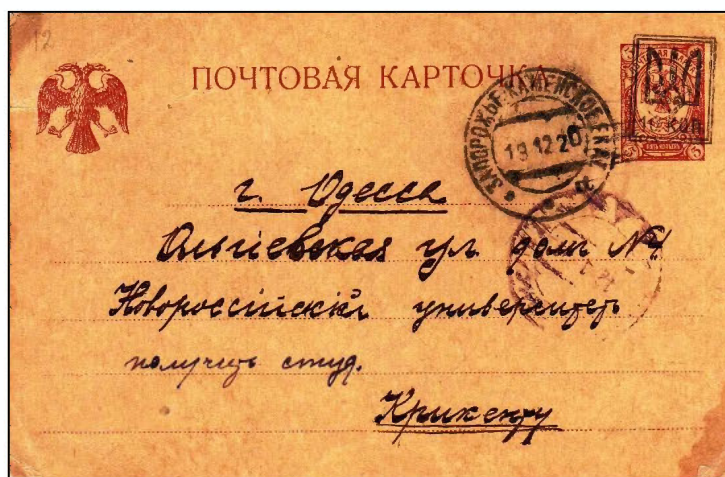 12
ПОЧТОВАЯ КАРТОЧКА
ЗАПОРОЖЬЕ-КАМЕНСКОЕ ЕКАТ.
19 12 20
коп
ПЯТЬ КОПѢЕКЪ
5 5
г. Одесса
Ольгіевская ул. домъ №4
Новороссійскій университетъ
получить студ.